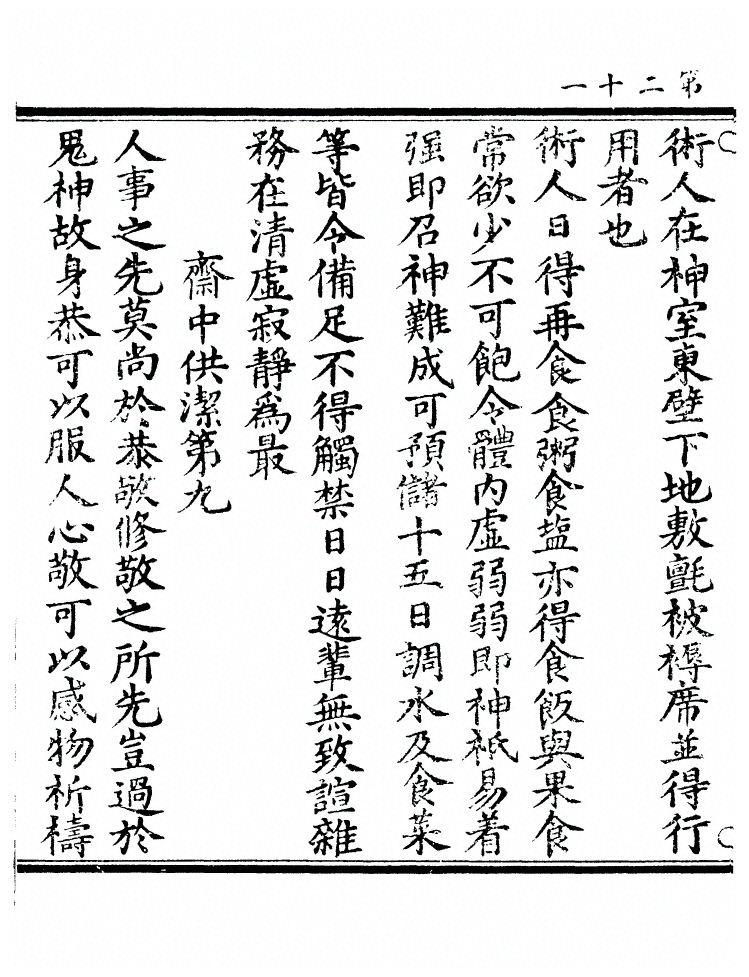 第二十一
術人在神室東壁下地敷氈被褥席並得行
用者也
術人日得再食食粥食盐亦得食飯與果食
常欲少不可飽令體内虛弱弱即神衹易着
强即召神難成可預儲十五日調水及食菜
等皆令備足不得觸禁日日遠輩無致諠雜
務在清虛寂靜爲最
齋中供潔第九
人事之先莫尚於恭敬修敬之所先豈過於
鬼神故身恭可以服人心敬可以感物祈禱